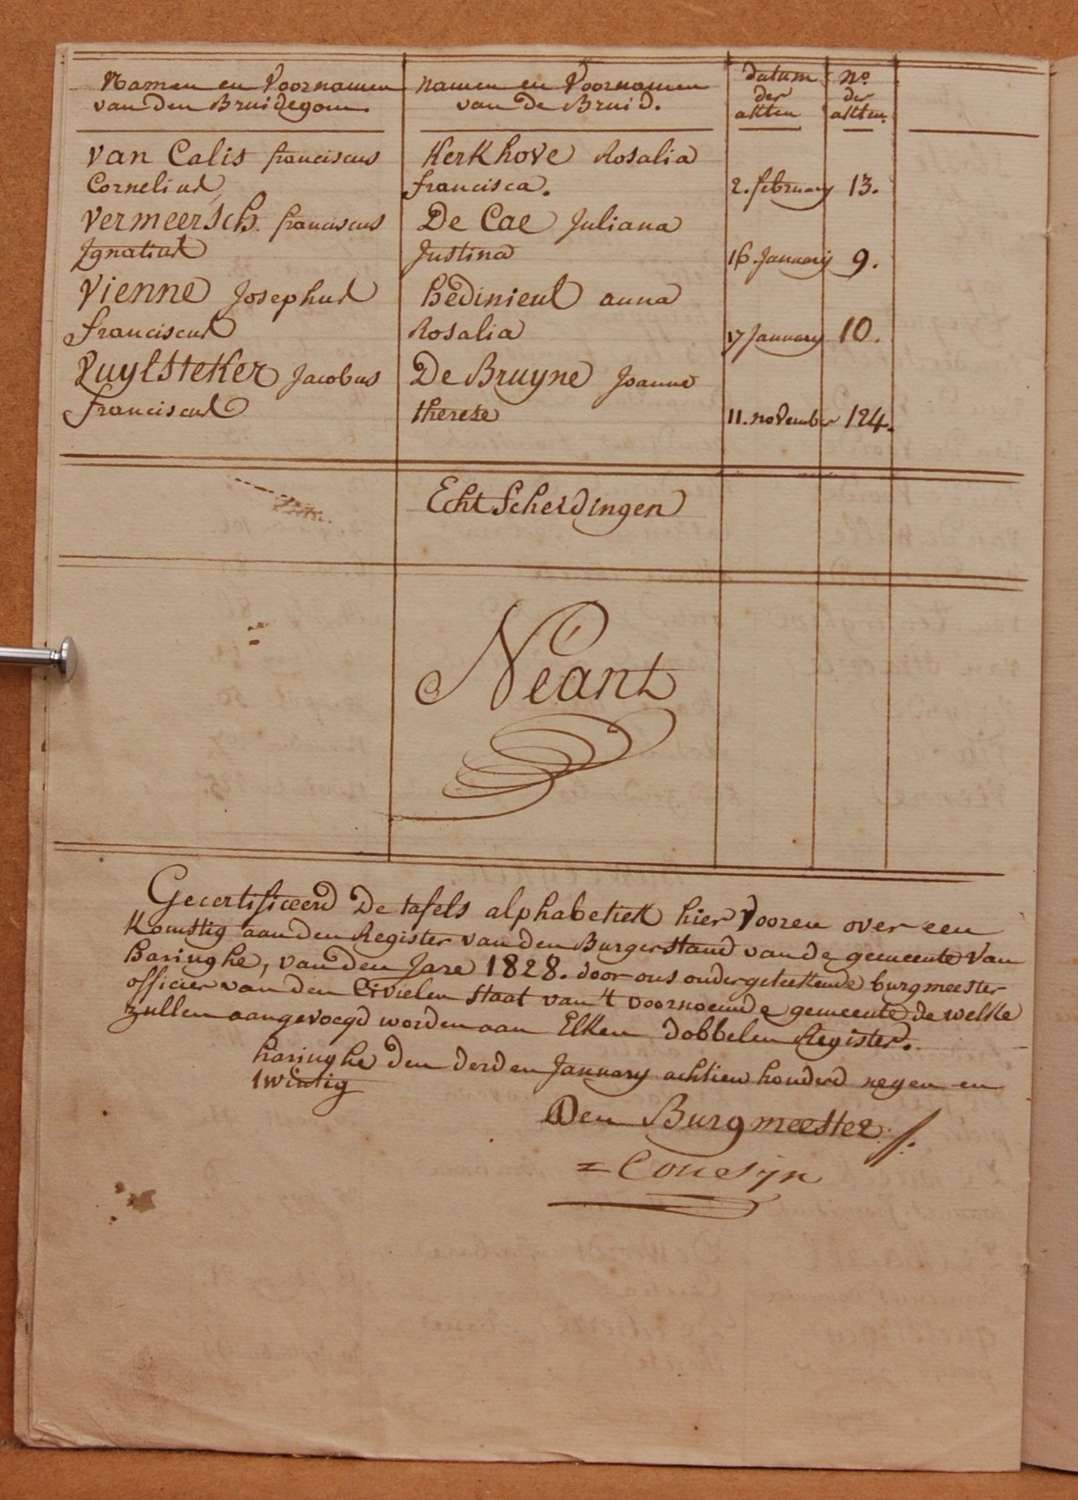 Namen en Voornamen van den Bruidegom.
namen en Voornamen van de Bruid.
datum der akten
no. der akten.
van Calis franciscus Cornelius
Kerkhove Rosalia francisca.
2. february
13.
Vermeersch. franciscus Ignatius
De Cae Juliana Justina
16. January
9.
Vienne Josephus franciscus
hedinieul anna Rosalia
17 January
10.
Puylsteker Jacobus franciscus
De Bruyne Joanne therese
11. november
124.
Echt Scheidingen
Néant
Gecertificeerd De tafels alphabetiek hier Vooren over een
Komstig aan den Register van den Burgerstand van de gemeente Van
haringhe, van den Jare 1828. door ons ondergeteekende burgmeester
officier van den Civielen staat van 't voornoemde gemeente de welke
zullen aangevoegd worden aan Elken dobbelen Register.
haringhe den derden January achtien honderd negen en
twintig
Den Burgmeester
= Cousyn